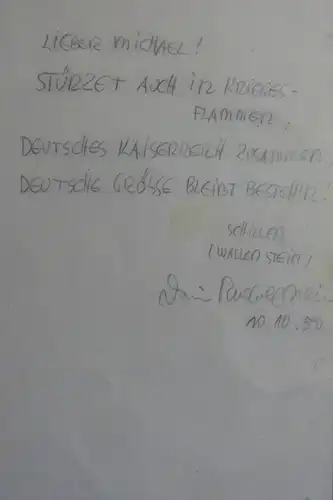 LIEBER MICHAEL!
STÜRZET AUCH IN KRIEGES-
FLAMMEN,
DEUTSCHES KAISERREICH ZUSAMMEN,
DEUTSCHE GRÖSSE BLEIBT BESTEHN!
SCHILLER
(WALLENSTEIN)
10.10.90